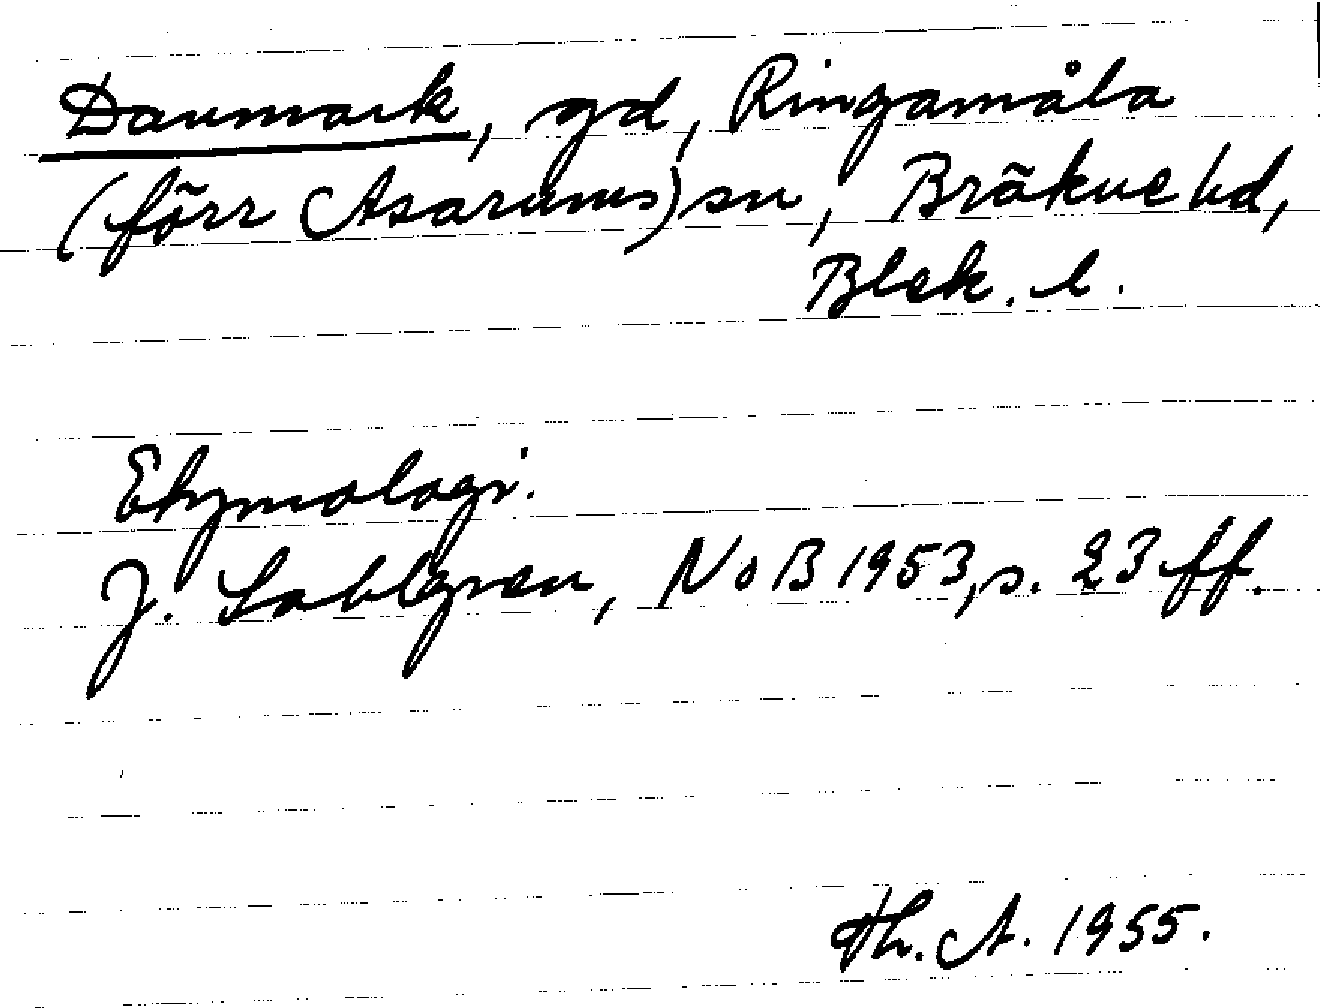 Danmark, gd, Ringamåla
(förr Asarums) sn, Bräkne hd,
Blek. l.
Etymologi.
J. Sahlgren, NoB 1953, s. 23 ff.
Th. A. 1955.